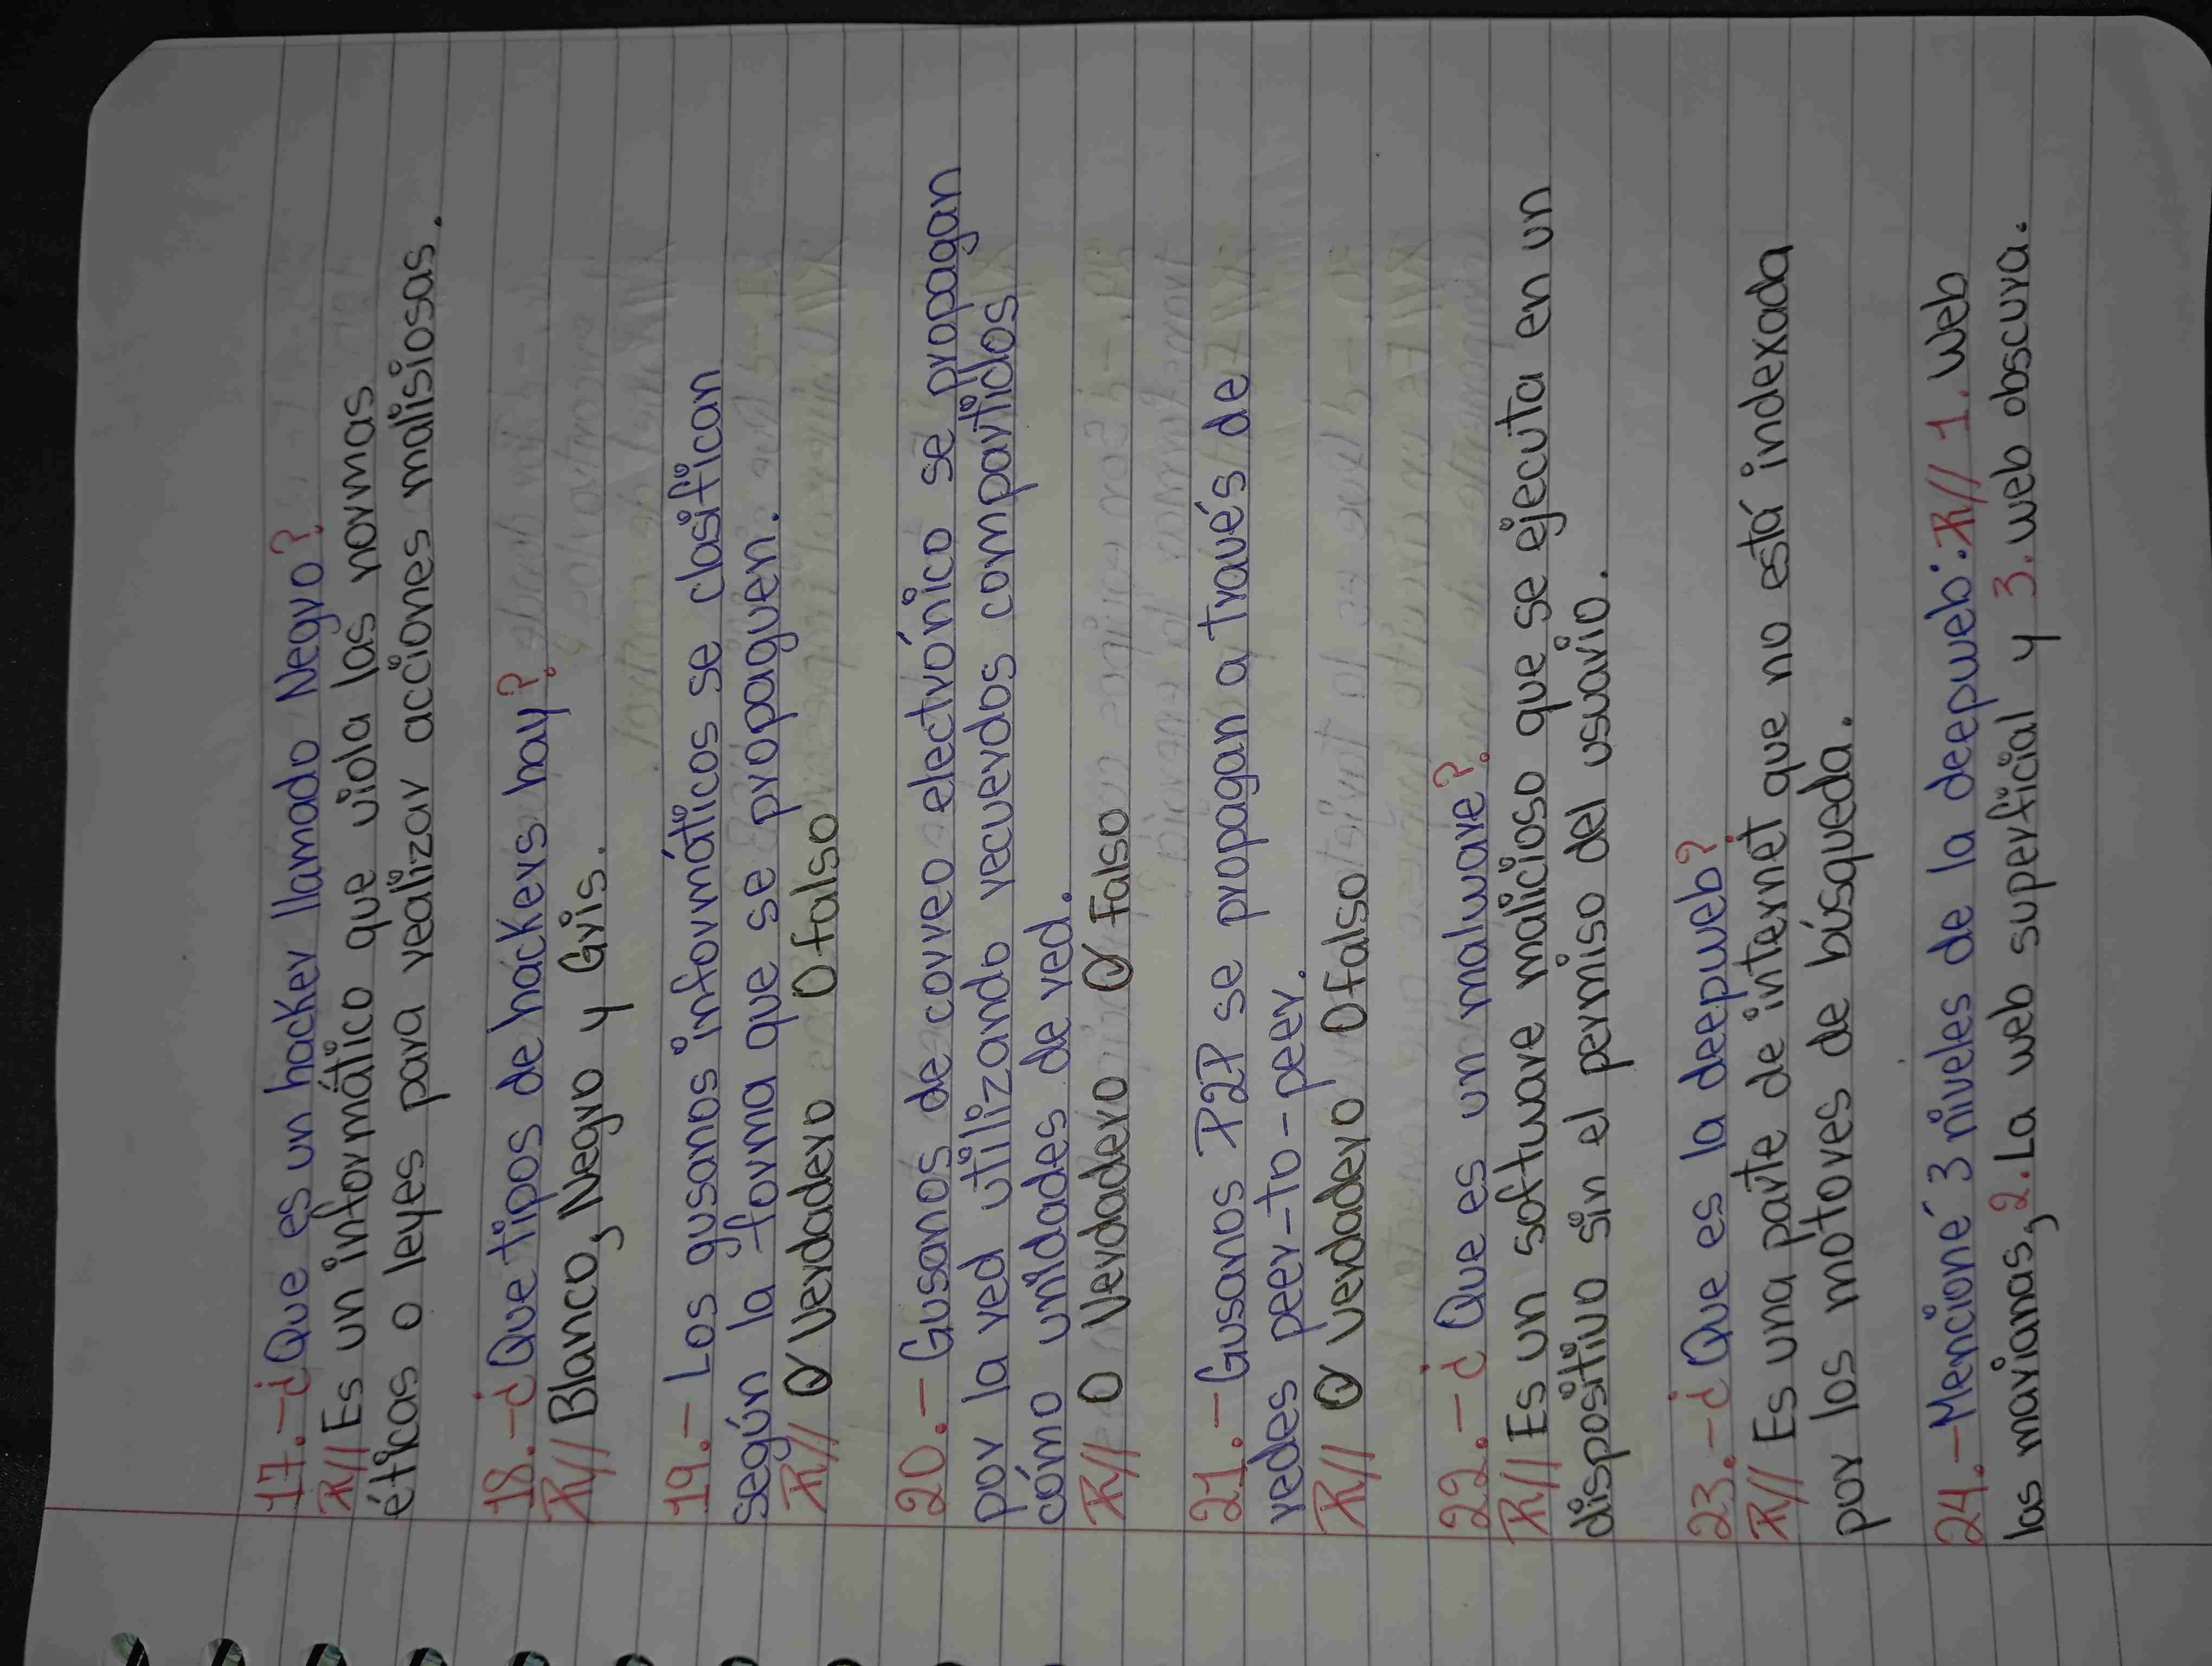 17.-¿Que es un hacker llamado Negro?
R// Es un informático que viola las normas
éticas o leyes para realizar acciones malisiosas.
18.-¿Que tipos de hackers hay?
R// Blanco, Negro y Gris.
19.- Los gusanos informáticos se clasifican
según la forma que se propaguen.
R// Ⓥ Verdadero O falso
20.- Gusanos de correo electrónico se propagan
por la red utilizando recuerdos compartidos
cómo unidades de red.
R// O Verdadero Ⓥ Falso
21.- Gusanos P2P se propagan a través de
redes peer-to-peer.
R// Ⓥ verdadero O falso
22.-¿Que es un malware?
R// Es un software malicioso que se ejecuta en un
dispositivo sin el permiso del usuario.
23.-¿Que es la deepweb?
R// Es una parte de internet que no está indexada
por los motores de búsqueda.
24.-Mencioné 3 niveles de la deepweb: R// 1. web
las marianas, 2. La web superficial y 3. web obscura.